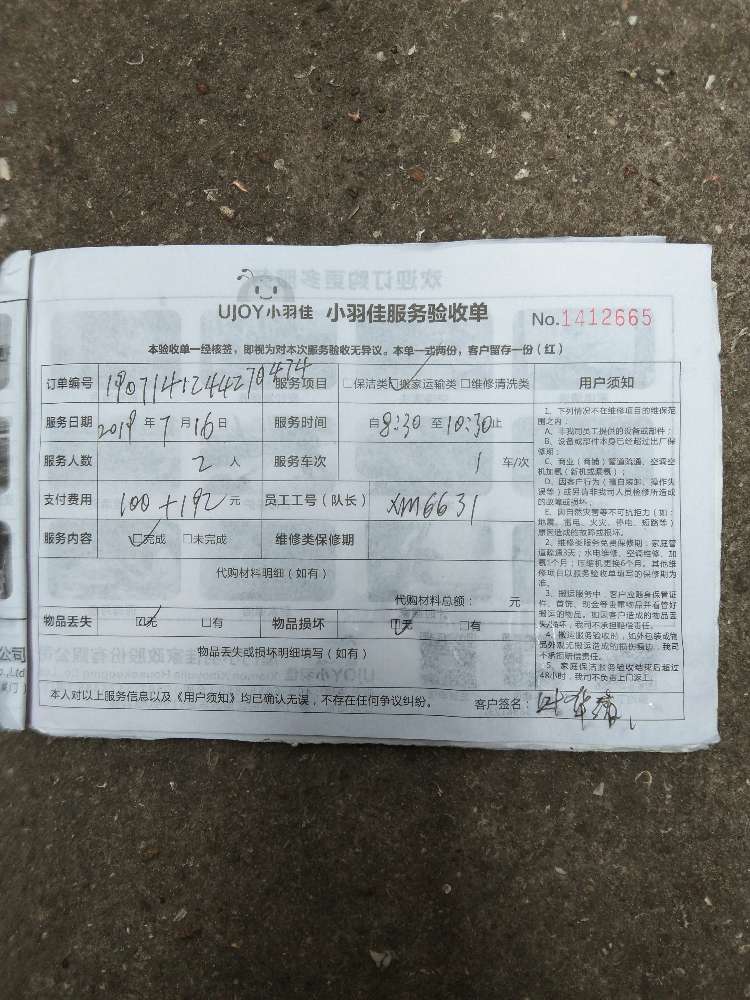 欢迎订购更多服
UJOY小羽佳 小羽佳服务验收单 No.1412665
本验收单一经核签，即视为对本次服务验收无异议。本单一式两份，客户留存一份（红）
订单编号 1907141244270474 服务项目 □保洁类 □搬家运输类 □维修清洗类
服务日期 2019 年 7 月 16 日 服务时间 自 8:30 至 10:30 止
服务人数 2 人 服务车次 1 车/次
支付费用 100+192 元 员工工号（队长） XM6631
服务内容 □完成 □未完成 维修类保修期
代购材料明细（如有）
代购材料总额： 元
物品丢失 □无 □有 物品损坏 □无 □有
物品丢失或损坏明细填写（如有）
本人对以上服务信息以及《用户须知》均已确认无误，不存在任何争议纠纷。 客户签名：
用户须知
1、下列情况不在维修项目的维保范
围之内：
A、非我司员工提供的设备或部件；
B、设备或部件本身已经超过出厂保
修期；
C、商业（商铺）管道疏通、空调空
机加氟（新机或漏氟）；
D、因客户行为（擅自装卸、操作失
误等）或另请非我司人员检修所造成
的故障或损坏；
E、因自然灾害等不可抗拒力（如：
地震、雷电、火灾、停电、短路等）
原因造成的故障或损坏。
2、维修类服务免费保修期：家庭管
道疏通3天；水电维修、空调维修、加
氟1个月；压缩机更换6个月。其他维
修项目以服务验收单填写的保修期为
准。
3、搬运服务中，客户应随身保管证
件、首饰、现金等贵重物品并看管好
搬运的物品。如因客户造成的物品丢
失/损坏，我司不承担赔偿责任。
4、搬运服务验收时，如外包装或物
品外观无搬运造成的损伤痕迹，我司
不承担赔偿责任。
5、家庭保洁服务验收结束后超过
48小时，我司不负责上门返工。
公司
.,Ltd
厦门）